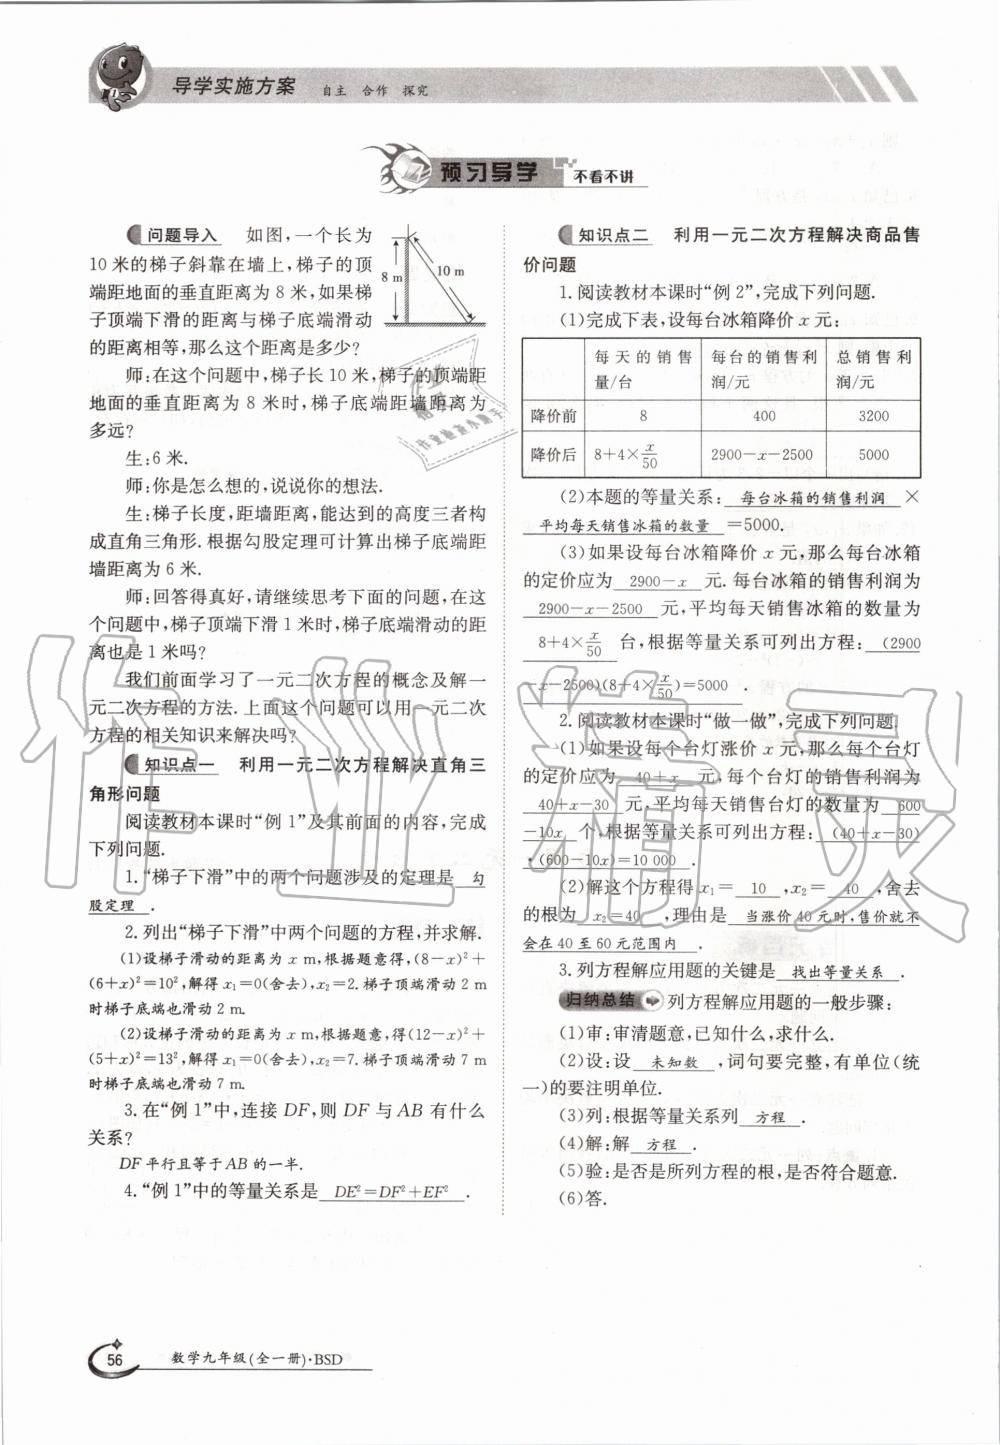 导学实施方案 自主 合作 探究
预习导学 不看不讲
问题导入 如图,一个长为
10米的梯子斜靠在墙上,梯子的顶
端距地面的垂直距离为8米,如果梯
子顶端下滑的距离与梯子底端滑动
的距离相等,那么这个距离是多少?
8 m
10 m
师:在这个问题中,梯子长10米,梯子的顶端距
地面的垂直距离为8米时,梯子底端距墙距离为
多远?
生:6米.
师:你是怎么想的,说说你的想法.
生:梯子长度,距墙距离,能达到的高度三者构
成直角三角形.根据勾股定理可计算出梯子底端距
墙距离为6米.
师:回答得真好,请继续思考下面的问题,在这
个问题中,梯子顶端下滑1米时,梯子底端滑动的距
离也是1米吗?
我们前面学习了一元二次方程的概念及解一
元二次方程的方法.上面这个问题可以用一元二次
方程的相关知识来解决吗?
知识点一 利用一元二次方程解决直角三
角形问题
阅读教材本课时“例1”及其前面的内容,完成
下列问题.
1.“梯子下滑”中的两个问题涉及的定理是 勾
股定理 .
2.列出“梯子下滑”中两个问题的方程,并求解.
(1)设梯子滑动的距离为x m,根据题意得,(8-x)²+
(6+x)²=10²,解得x₁=0(舍去),x₂=2.梯子顶端滑动2 m
时梯子底端也滑动2 m.
(2)设梯子滑动的距离为x m,根据题意,得(12-x)²+
(5+x)²=13²,解得x₁=0(舍去),x₂=7.梯子顶端滑动7 m
时梯子底端也滑动7 m.
3.在“例1”中,连接DF,则DF与AB有什么
关系?
DF平行且等于AB的一半.
4.“例1”中的等量关系是 DE²=DF²+EF² .
知识点二 利用一元二次方程解决商品售
价问题
1.阅读教材本课时“例2”,完成下列问题.
(1)完成下表,设每台冰箱降价x元:
每天的销售量/台 每台的销售利润/元 总销售利润/元
降价前 8 400 3200
降价后 8+4×x/50 2900-x-2500 5000
(2)本题的等量关系: 每台冰箱的销售利润 ×
平均每天销售冰箱的数量 =5000.
(3)如果设每台冰箱降价x元,那么每台冰箱
的定价应为 2900-x 元.每台冰箱的销售利润为
2900-x-2500 元,平均每天销售冰箱的数量为
8+4×x/50 台,根据等量关系可列出方程: (2900
-x-2500)(8+4×x/50)=5000 .
2.阅读教材本课时“做一做”,完成下列问题.
(1)如果设每个台灯涨价x元,那么每个台灯
的定价应为 40+x 元,每个台灯的销售利润为
40+x-30 元,平均每天销售台灯的数量为 600
-10x 个,根据等量关系可列出方程: (40+x-30)
·(600-10x)=10 000 .
(2)解这个方程得x₁= 10 ,x₂= 40 ,舍去
的根为 x₂=40 ,理由是 当涨价40元时,售价就不
会在40至60元范围内 .
3.列方程解应用题的关键是 找出等量关系 .
归纳总结 列方程解应用题的一般步骤:
(1)审:审清题意,已知什么,求什么.
(2)设:设 未知数 ,词句要完整,有单位(统
一)的要注明单位.
(3)列:根据等量关系列 方程 .
(4)解:解 方程 .
(5)验:是否是所列方程的根,是否符合题意.
(6)答.
作业精灵
56 数学九年级(全一册)·BSD